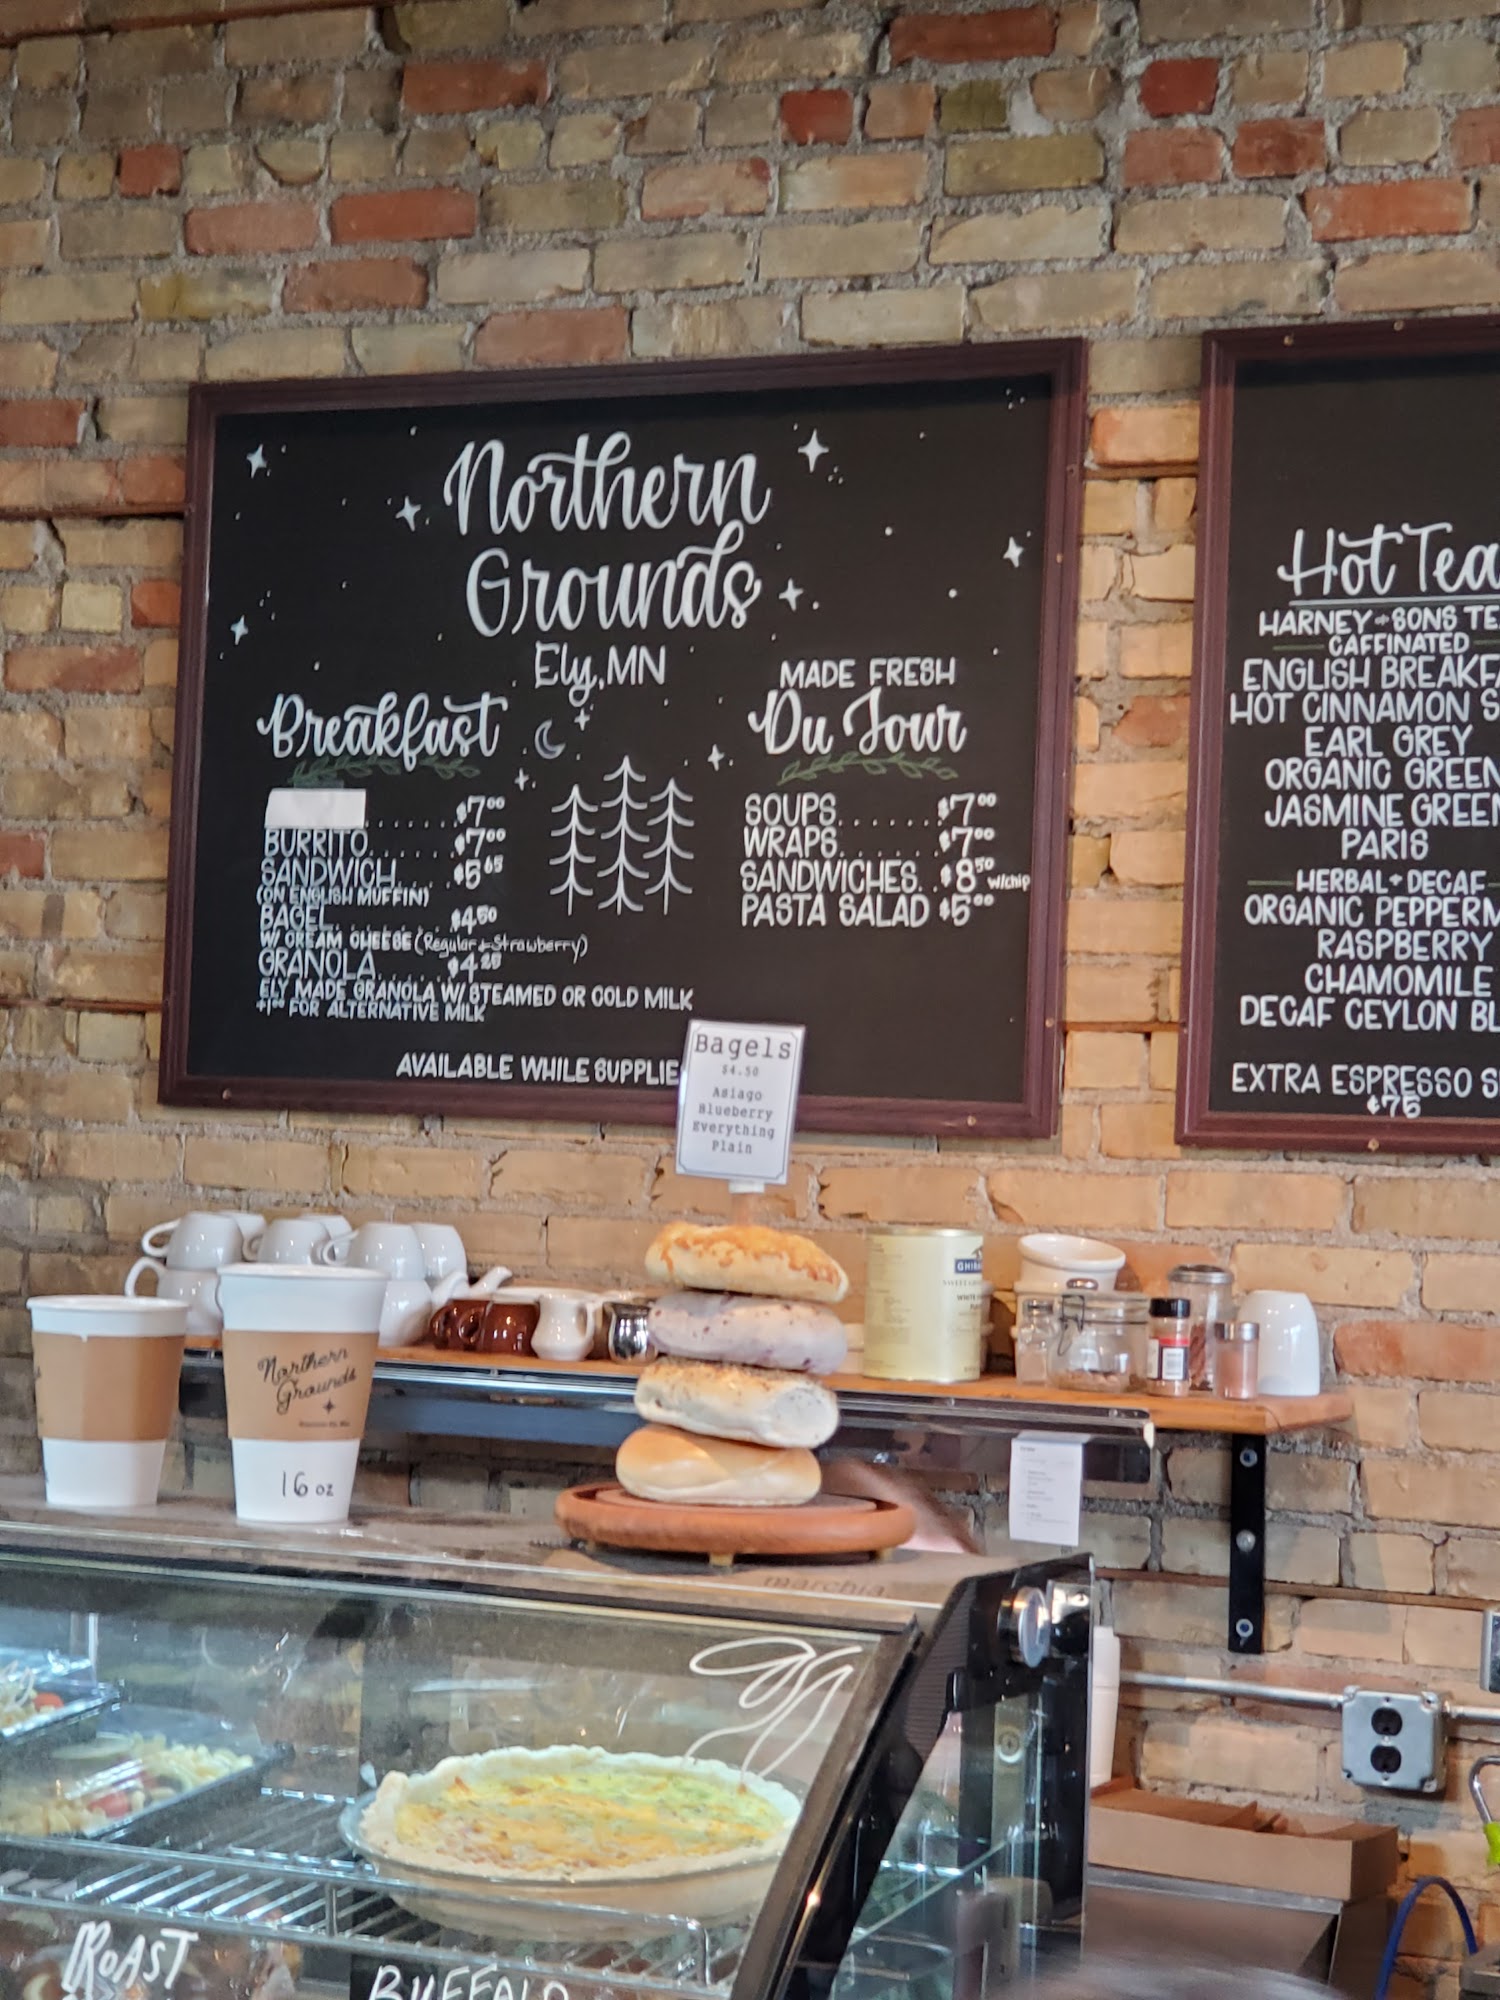 Northern
Grounds
Ely, MN
Breakfast
.......$7⁰⁰
BURRITO.......$7⁰⁰
SANDWICH....$5⁶⁵
(ON ENGLISH MUFFIN)
BAGEL.......$4⁵⁰
W/ CREAM CHEESE (Regular + Strawberry)
GRANOLA.....$4²⁵
ELY MADE GRANOLA W/ STEAMED OR COLD MILK
+1⁰⁰ FOR ALTERNATIVE MILK
MADE FRESH
Du Jour
SOUPS.......$7⁰⁰
WRAPS.......$7⁰⁰
SANDWICHES..$8⁵⁰ w/chip
PASTA SALAD $5⁰⁰
AVAILABLE WHILE SUPPLIE
Hot Tea
HARNEY + SONS TE
CAFFINATED
ENGLISH BREAKFA
HOT CINNAMON S
EARL GREY
ORGANIC GREEN
JASMINE GREEN
PARIS
HERBAL + DECAF
ORGANIC PEPPERM
RASPBERRY
CHAMOMILE
DECAF CEYLON BL
EXTRA ESPRESSO S
$.75
Bagels
$4.50
Asiago
Blueberry
Everything
Plain
GHIRA
Northern
Grounds
16 oz
marchia
ROAST
BUFFALO